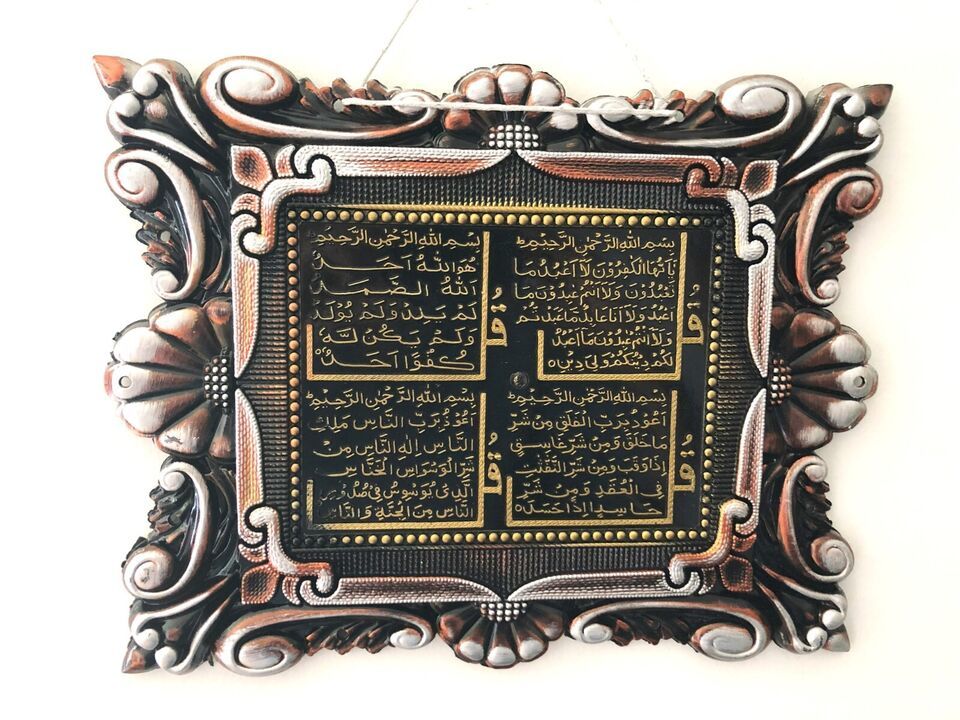 بِسْمِ اللهِ الرَّحْمٰنِ الرَّحِيْمِ
قُلْ
يٰاَيُّهَا الْكٰفِرُوْنَ لَآ اَعْبُدُ مَا
تَعْبُدُوْنَ وَلَآ اَنْتُمْ عٰبِدُوْنَ مَا
اَعْبُدُ وَلَا اَنَا عَابِدٌ مَّا عَبَدْتُّمْ
وَلَآ اَنْتُمْ عٰبِدُوْنَ مَا اَعْبُدُ
لَكُمْ دِيْنُكُمْ وَلِيَ دِيْنِ
بِسْمِ اللهِ الرَّحْمٰنِ الرَّحِيْمِ
قُلْ
هُوَ اللهُ اَحَدٌ
اَللهُ الصَّمَدُ
لَمْ يَلِدْ وَلَمْ يُوْلَدْ
وَلَمْ يَكُنْ لَّهٗ
كُفُوًا اَحَدٌ
بِسْمِ اللهِ الرَّحْمٰنِ الرَّحِيْمِ
قُلْ
اَعُوْذُ بِرَبِّ الْفَلَقِ مِنْ شَرِّ
مَا خَلَقَ وَمِنْ شَرِّ غَاسِقٍ
اِذَا وَقَبَ وَمِنْ شَرِّ النَّفّٰثٰتِ
فِي الْعُقَدِ وَمِنْ شَرِّ
حَاسِدٍ اِذَا حَسَدَ
بِسْمِ اللهِ الرَّحْمٰنِ الرَّحِيْمِ
قُلْ
اَعُوْذُ بِرَبِّ النَّاسِ مَلِكِ
النَّاسِ اِلٰهِ النَّاسِ مِنْ
شَرِّ الْوَسْوَاسِ الْخَنَّاسِ
الَّذِيْ يُوَسْوِسُ فِيْ صُدُوْرِ
النَّاسِ مِنَ الْجِنَّةِ وَالنَّاسِ